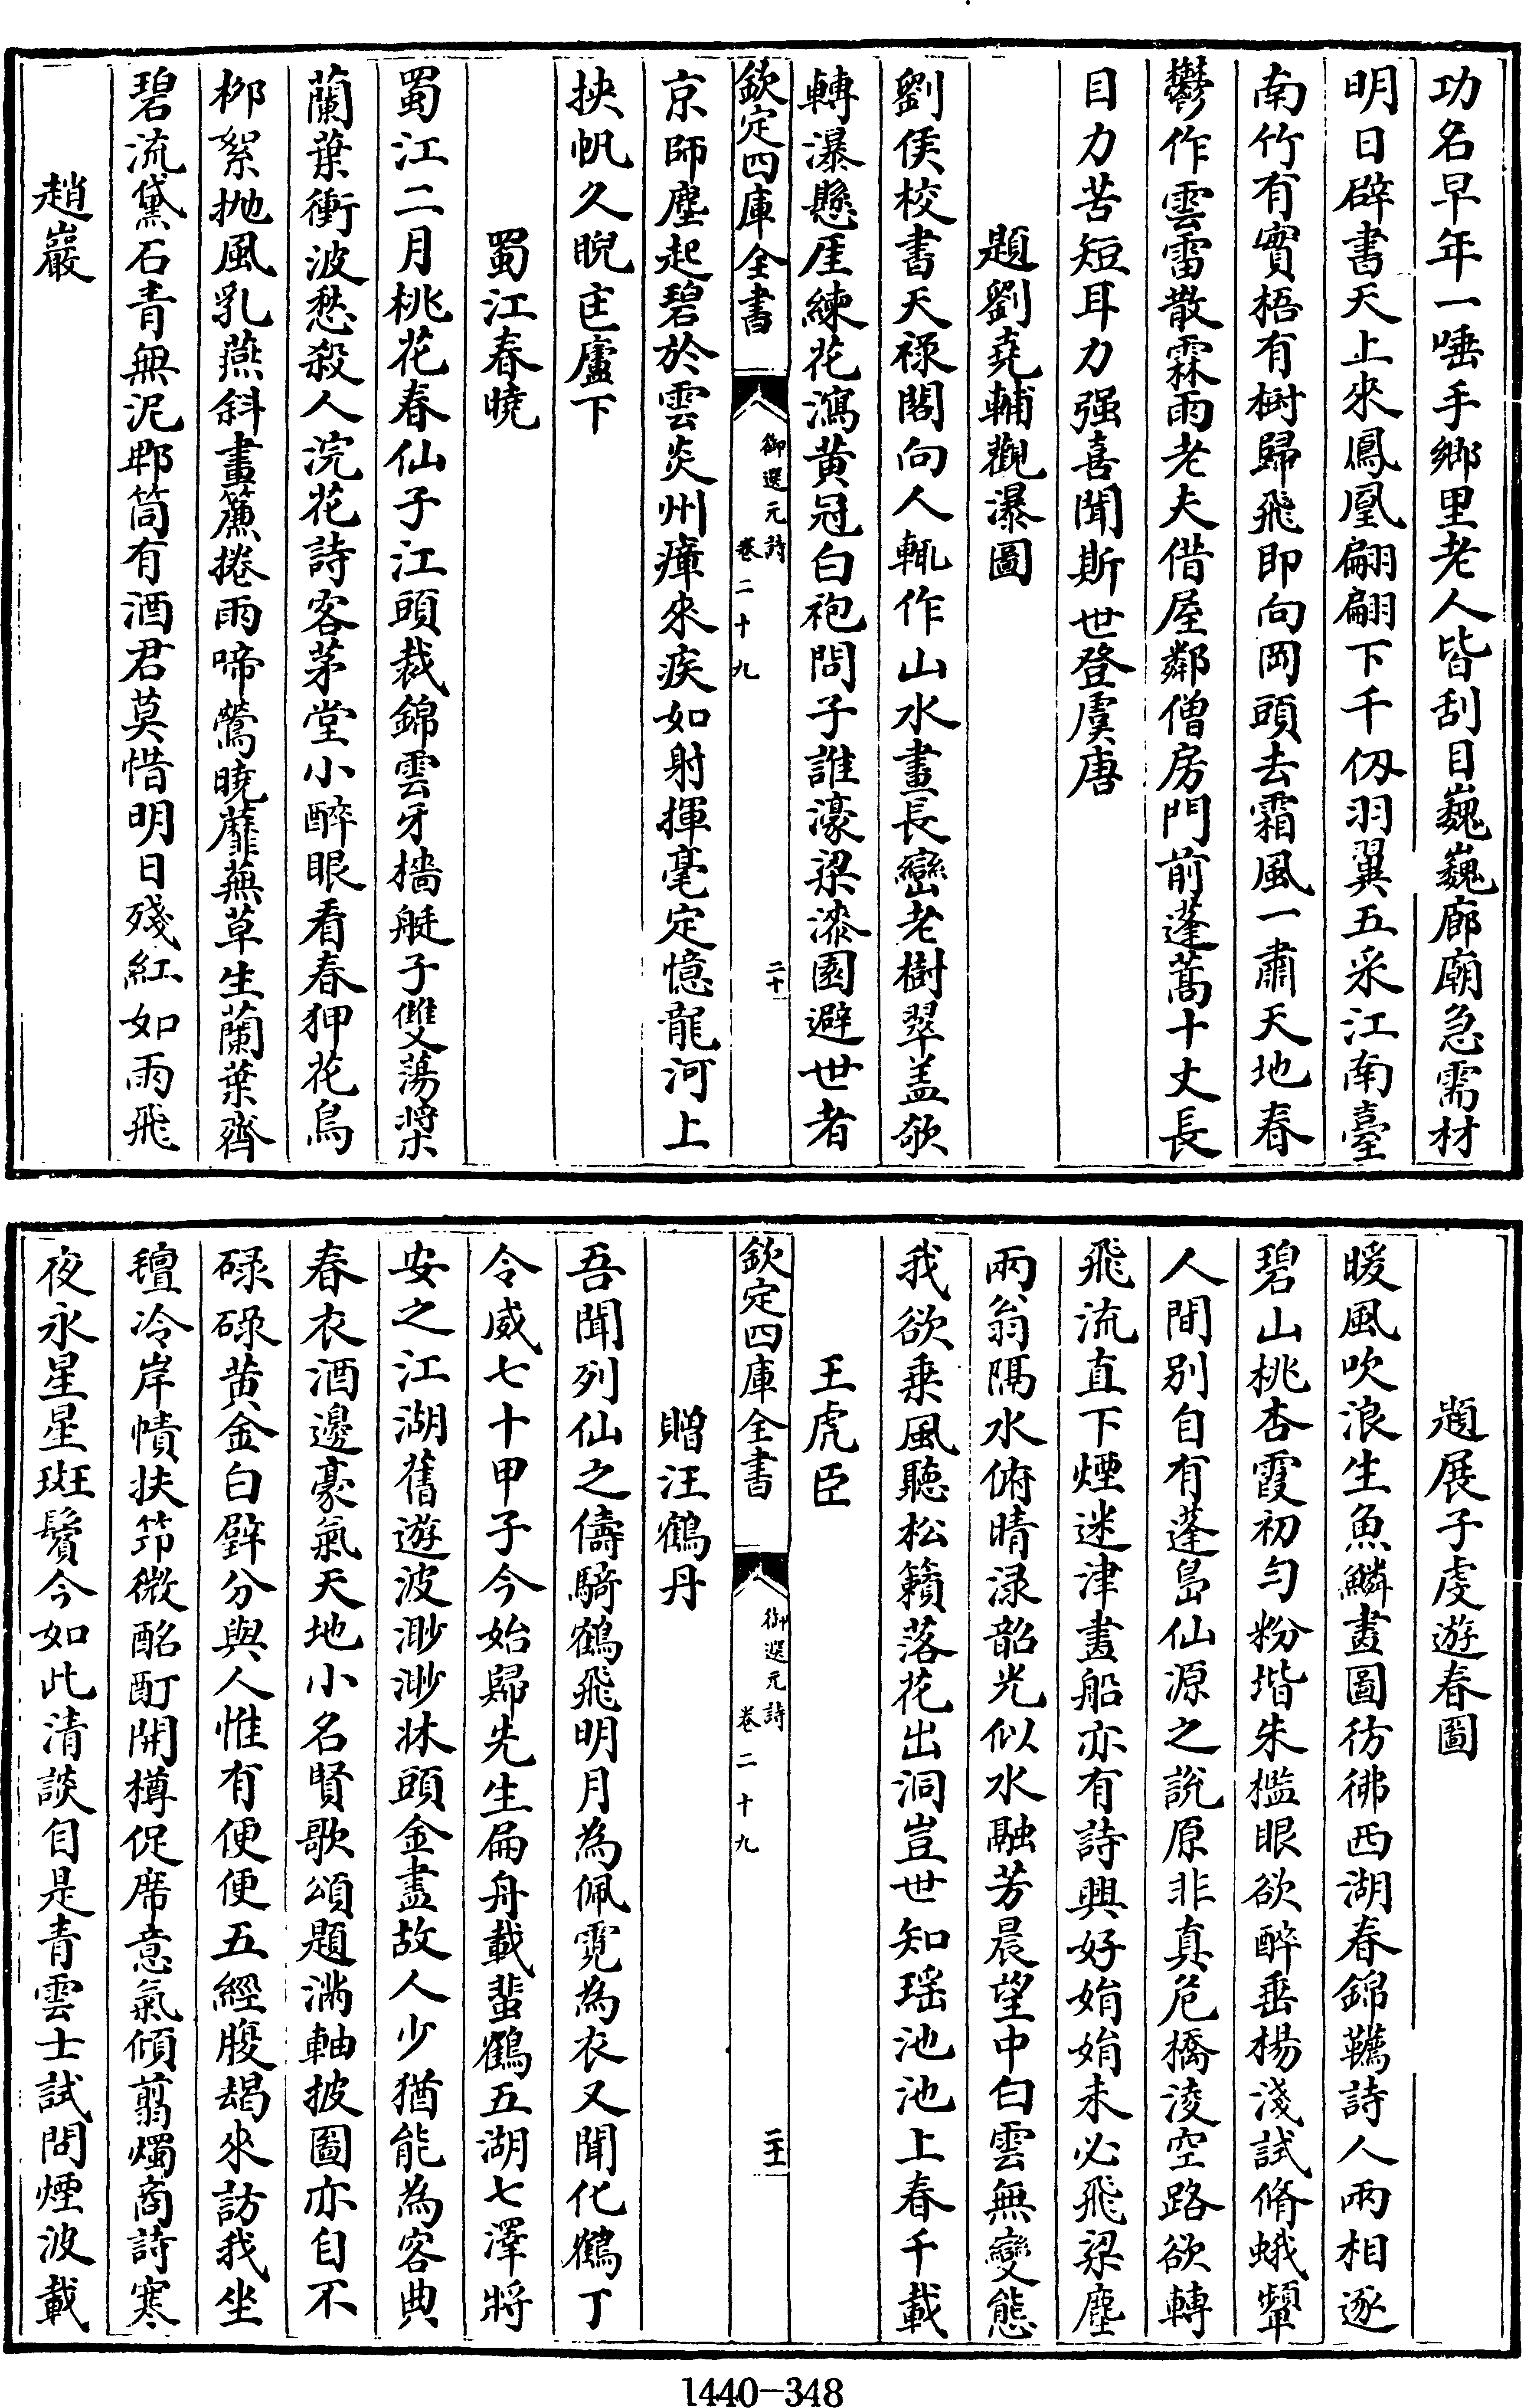 功名早年一唾手鄉里老人皆刮目巍巍廊廟急需材
明日辟書天上來鳳凰翩翩下千仭羽翼五采江南臺
南竹有實梧有樹歸飛即向岡頭去霜風一肅天地春
鬱作雲雷散霖雨老夫借屋鄰僧房門前蓬蒿十丈長
目力苦短耳力强喜聞斯世登虞唐
題劉堯輔觀瀑圖
劉侯校書天禄閣向人輒作山水畫長巒老樹翠盖欹
轉瀑懸厓練花瀉黄冠白袍問子誰濠梁漆園避世者
欽定四庫全書
御選元詩
卷二十九
二十
京師塵起碧於雲炎州瘴來疾如射揮毫定憶龍河上
挾帆久睨匡廬下
蜀江春曉
蜀江二月桃花春仙子江頭裁錦雲牙檣艇子雙蕩槳
蘭葉衝波愁殺人浣花詩客茅堂小醉眼看春狎花鳥
桺絮抛風乳燕斜畫簾捲雨啼鶯曉蘼蕪草生蘭葉齊
碧流黛石青無泥郫筒有酒君莫惜明日殘紅如雨飛
趙巖
題展子虔遊春圖
暖風吹浪生魚鱗畫圖彷彿西湖春錦韉詩人兩相逐
碧山桃杏霞初勻粉堦朱檻眼欲醉垂楊淺試脩蛾顰
人間别自有蓬島仙源之說原非真危橋淩空路欲轉
飛流直下煙迷津畫船亦有詩興好娟娟未必飛梁塵
兩翁隔水俯晴渌韶光似水融芳晨望中白雲無變態
我欲乗風聽松籟落花出洞豈世知瑶池池上春千載
王虎臣
欽定四庫全書
御選元詩
卷二十九
二十一
贈汪鶴丹
吾聞列仙之儔騎鶴飛明月為佩霓為衣又聞化鶴丁
令威七十甲子今始歸先生扁舟載蜚鶴五湖七澤將
安之江湖舊遊波渺渺牀頭金盡故人少猶能為客典
春衣酒邊豪氣天地小名賢歌頌題滿軸披圖亦自不
碌碌黄金白璧分與人惟有便便五經腹朅來訪我坐
氊冷岸幘扶筇微酩酊開樽促席意氣傾翦燭商詩寒
夜永星星斑鬢今如此清談自是青雲士試問煙波載
1440-348